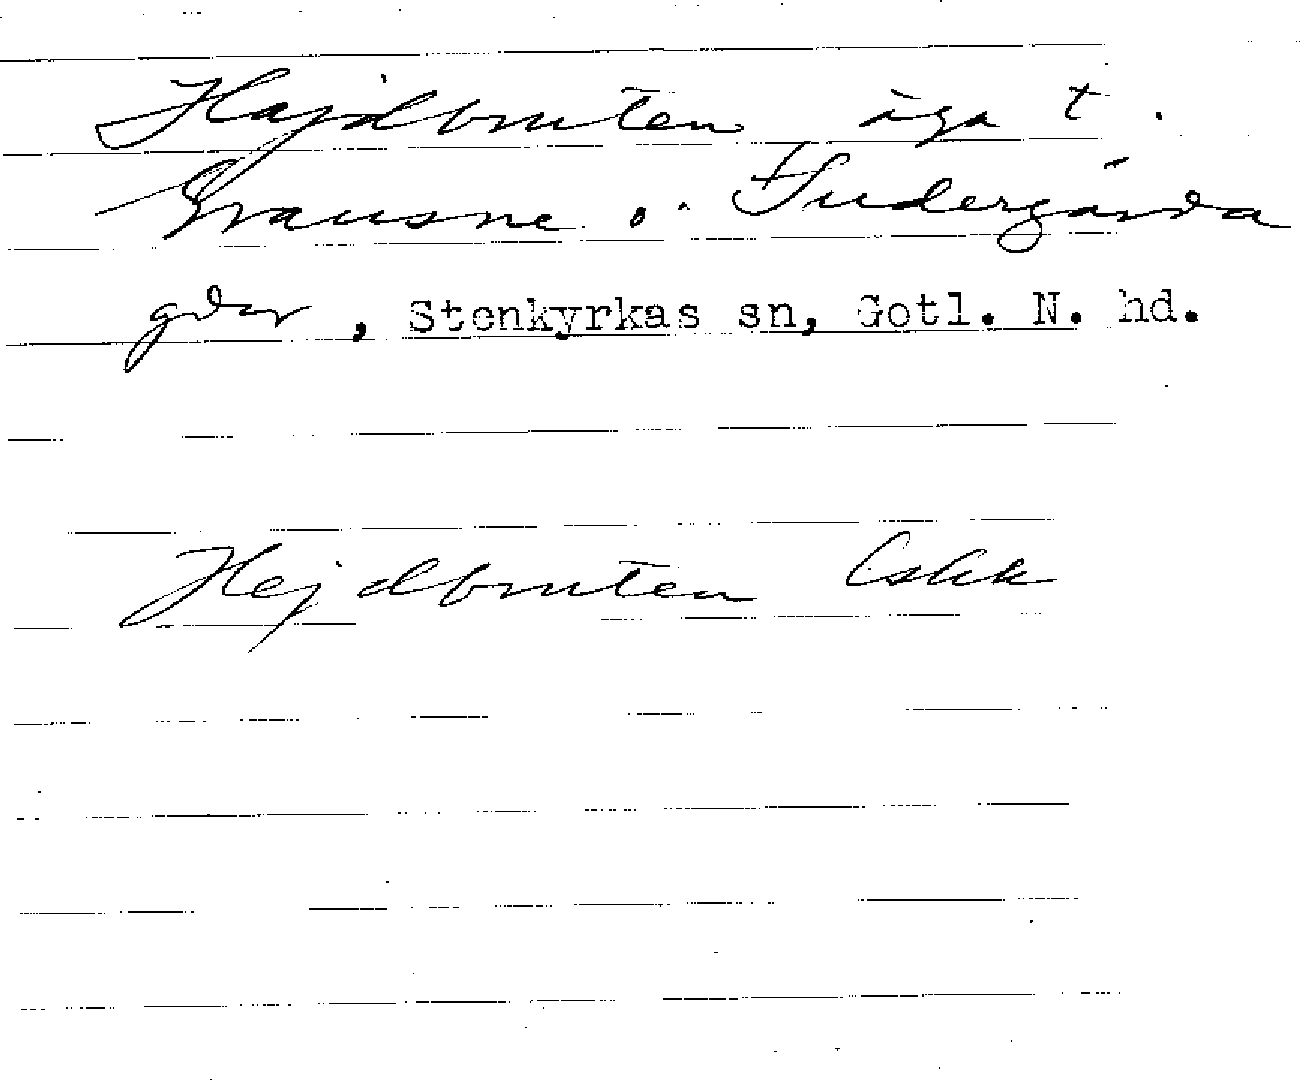 Hajdbruten äga t.
Grausne o. Sudergårda
gdar, Stenkyrkas sn, Gotl. N. hd.
Hejdbruten Cskk